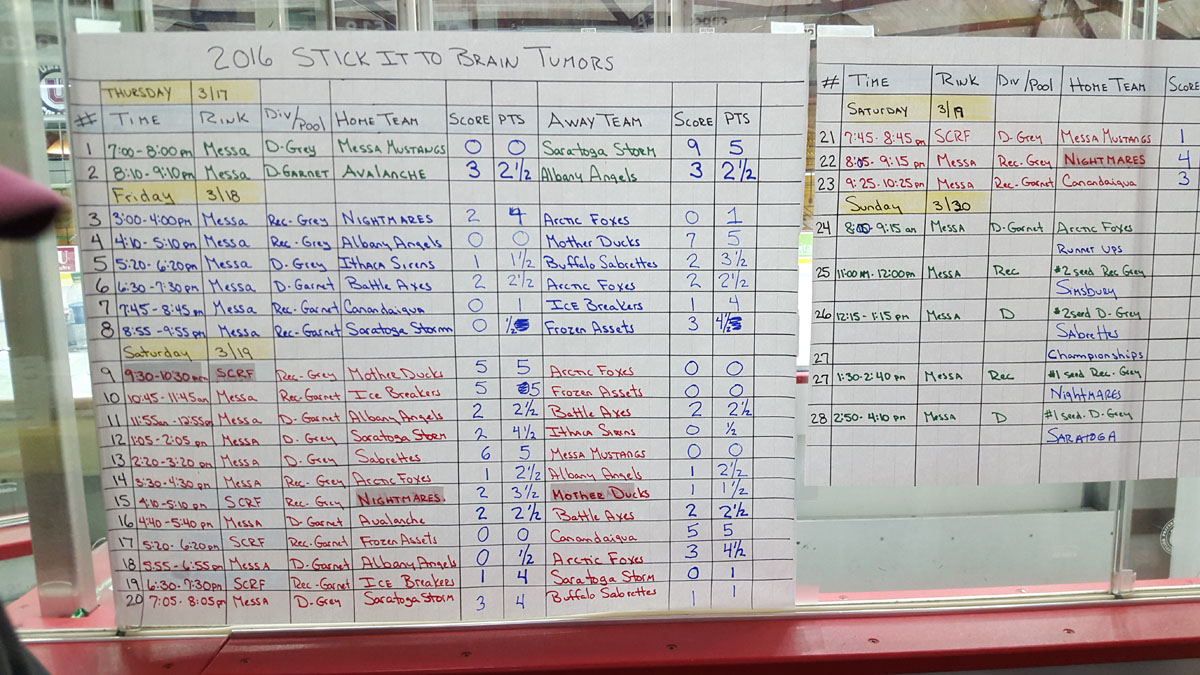 2016 STICK IT TO BRAIN TUMORS
THURSDAY 3/17
# TIME RINK Div/Pool HOME TEAM SCORE PTS AWAY TEAM SCORE PTS
1 7:00-8:00pm Messa D-Grey MESSA MUSTANGS 0 0 Saratoga Storm 9 5
2 8:10-9:10pm Messa D-GARNET AVALANCHE 3 2 1/2 Albany Angels 3 2 1/2
Friday 3/18
3 3:00-4:00pm Messa Rec-Grey NIGHTMARES 2 4 Arctic Foxes 0 1
4 4:10-5:10pm Messa Rec-Grey Albany Angels 0 0 Mother Ducks 7 5
5 5:20-6:20pm Messa D-Grey Ithaca Sirens 1 1 1/2 Buffalo Sabrettes 2 3 1/2
6 6:30-7:30pm Messa D-Garnet Battle Axes 2 2 1/2 Arctic Foxes 2 2 1/2
7 7:45-8:45pm Messa Rec-Garnet Canandaigua 0 1 ICE Breakers 1 4
8 8:55-9:55pm Messa Rec-Garnet Saratoga Storm 0 1/2 Frozen Assets 3 4 1/2
Saturday 3/19
9 9:30-10:30am SCRF Rec-Grey Mother Ducks 5 5 Arctic Foxes 0 0
10 10:45-11:45am Messa Rec-Garnet Ice Breakers 5 5 Frozen Assets 0 0
11 11:55am-12:55pm Messa D-Garnet Albany Angels 2 2 1/2 Battle Axes 2 2 1/2
12 1:05-2:05pm Messa D-Grey Saratoga Storm 2 4 1/2 Ithaca Sirens 0 1/2
13 2:20-3:20pm Messa D-Grey Sabrettes 6 5 MESSA MUSTANGS 0 0
14 3:30-4:30pm Messa Rec-Grey Arctic Foxes 1 2 1/2 Albany Angels 1 2 1/2
15 4:10-5:10pm SCRF Rec-Grey NIGHTMARES 2 3 1/2 MOTHER Ducks 1 1 1/2
16 4:40-5:40pm Messa D-Garnet Avalanche 2 2 1/2 Battle Axes 2 2 1/2
17 5:20-6:20pm SCRF Rec-Garnet Frozen Assets 0 0 Canandaigua 5 5
18 5:55-6:55pm Messa D-Garnet Albany Angels 0 1/2 Arctic Foxes 3 4 1/2
19 6:30-7:30pm SCRF Rec-Garnet ICE Breakers 1 4 Saratoga Storm 0 1
20 7:05-8:05pm Messa D-Grey Saratoga Storm 3 4 Buffalo Sabrettes 1 1
# TIME RINK Div/Pool HOME TEAM SCORE
SATURDAY 3/19
21 7:45-8:45pm SCRF D-Grey Messa Mustangs 1
22 8:05-9:15pm Messa Rec-Grey NIGHTMARES 4
23 9:25-10:25pm Messa Rec-Garnet Canandaigua 3
Sunday 3/20
24 8:00-9:15am Messa D-Garnet Arctic Foxes
Runner Ups
25 11:00am-12:00pm Messa Rec #2 seed Rec Grey
Simsbury
26 12:15-1:15pm Messa D #2 seed D-Grey
Sabrettes
27 Championships
27 1:30-2:40pm Messa Rec #1 seed Rec-Grey
Nightmares
28 2:50-4:10pm Messa D #1 seed D-Grey
SARATOGA